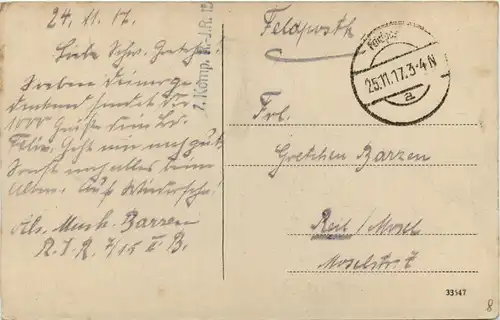 24. 11. 17.
Liebe Schw. Gretchen
Soeben Deiner ge-
denken sendet Dir
1000 Grüße Dein Br.
Felix. Geht mir noch gut
Sonst noch alles beim
Alten. Auf Wiedersehn!
Abs. Musk. Barzen
R. I. R. 7/15 II B.
7. Komp. R.-I.R. 15
Feldpost
25.11.17.3-4N
a
Frl.
Gretchen Barzen
Reil / Mosel
Moselstr. 7
33547
8